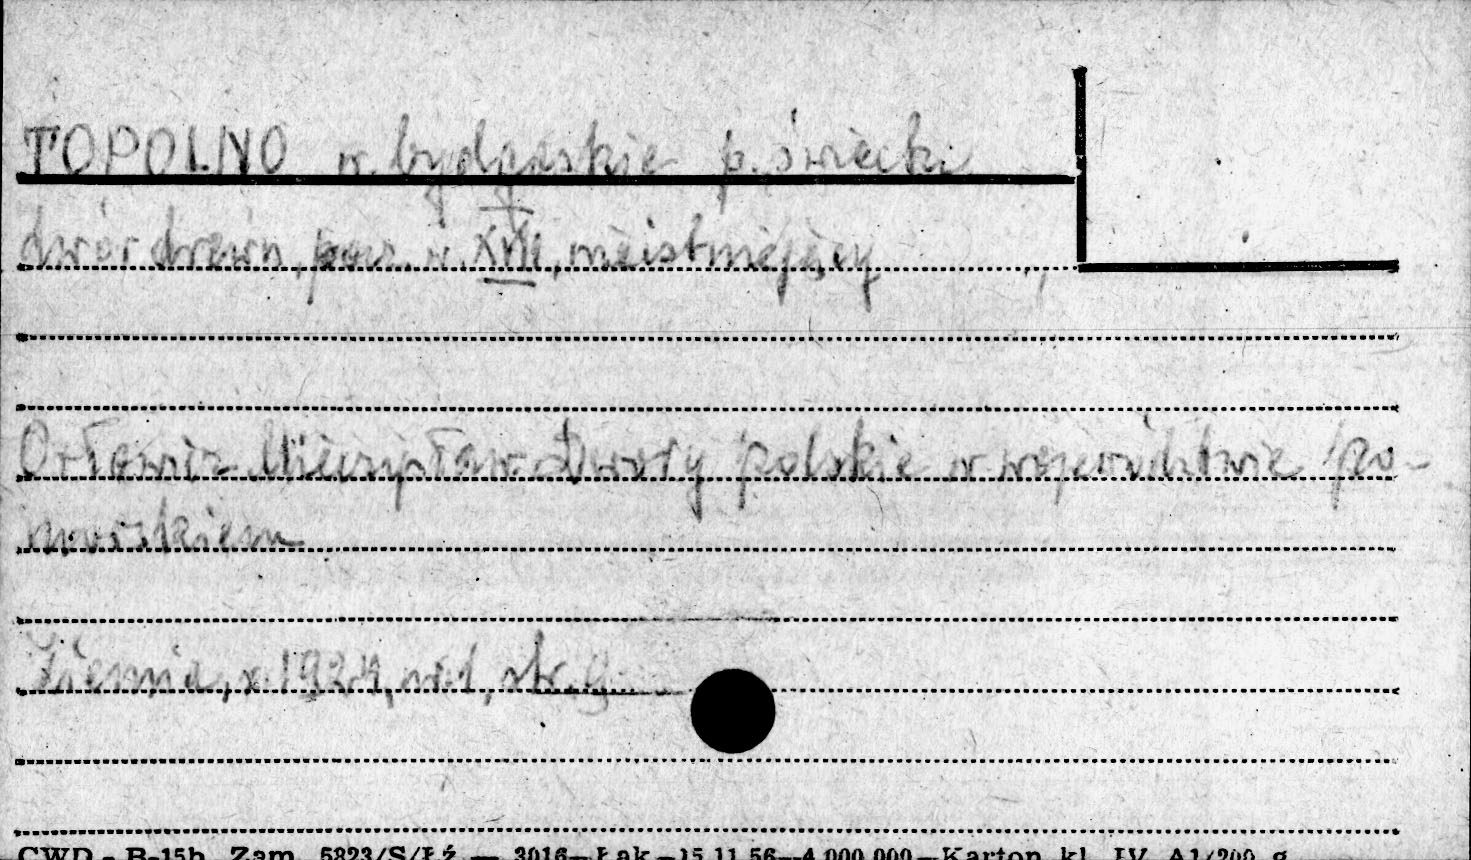 TOPOLNO w. bydgoskie p. świecki
dwór drewn, pocz. w. XVII, nieistniejący
Orłowicz Mieczysław Dwory polskie w województwie po-
morskiem
Ziemia, r. 1924, nr. 1, str. 9
CWD - B-15b. Zam. 5823/S/Łź — 3016—Łak—15.11.56—4.000.000—Karton kl. IV. A1/200 g